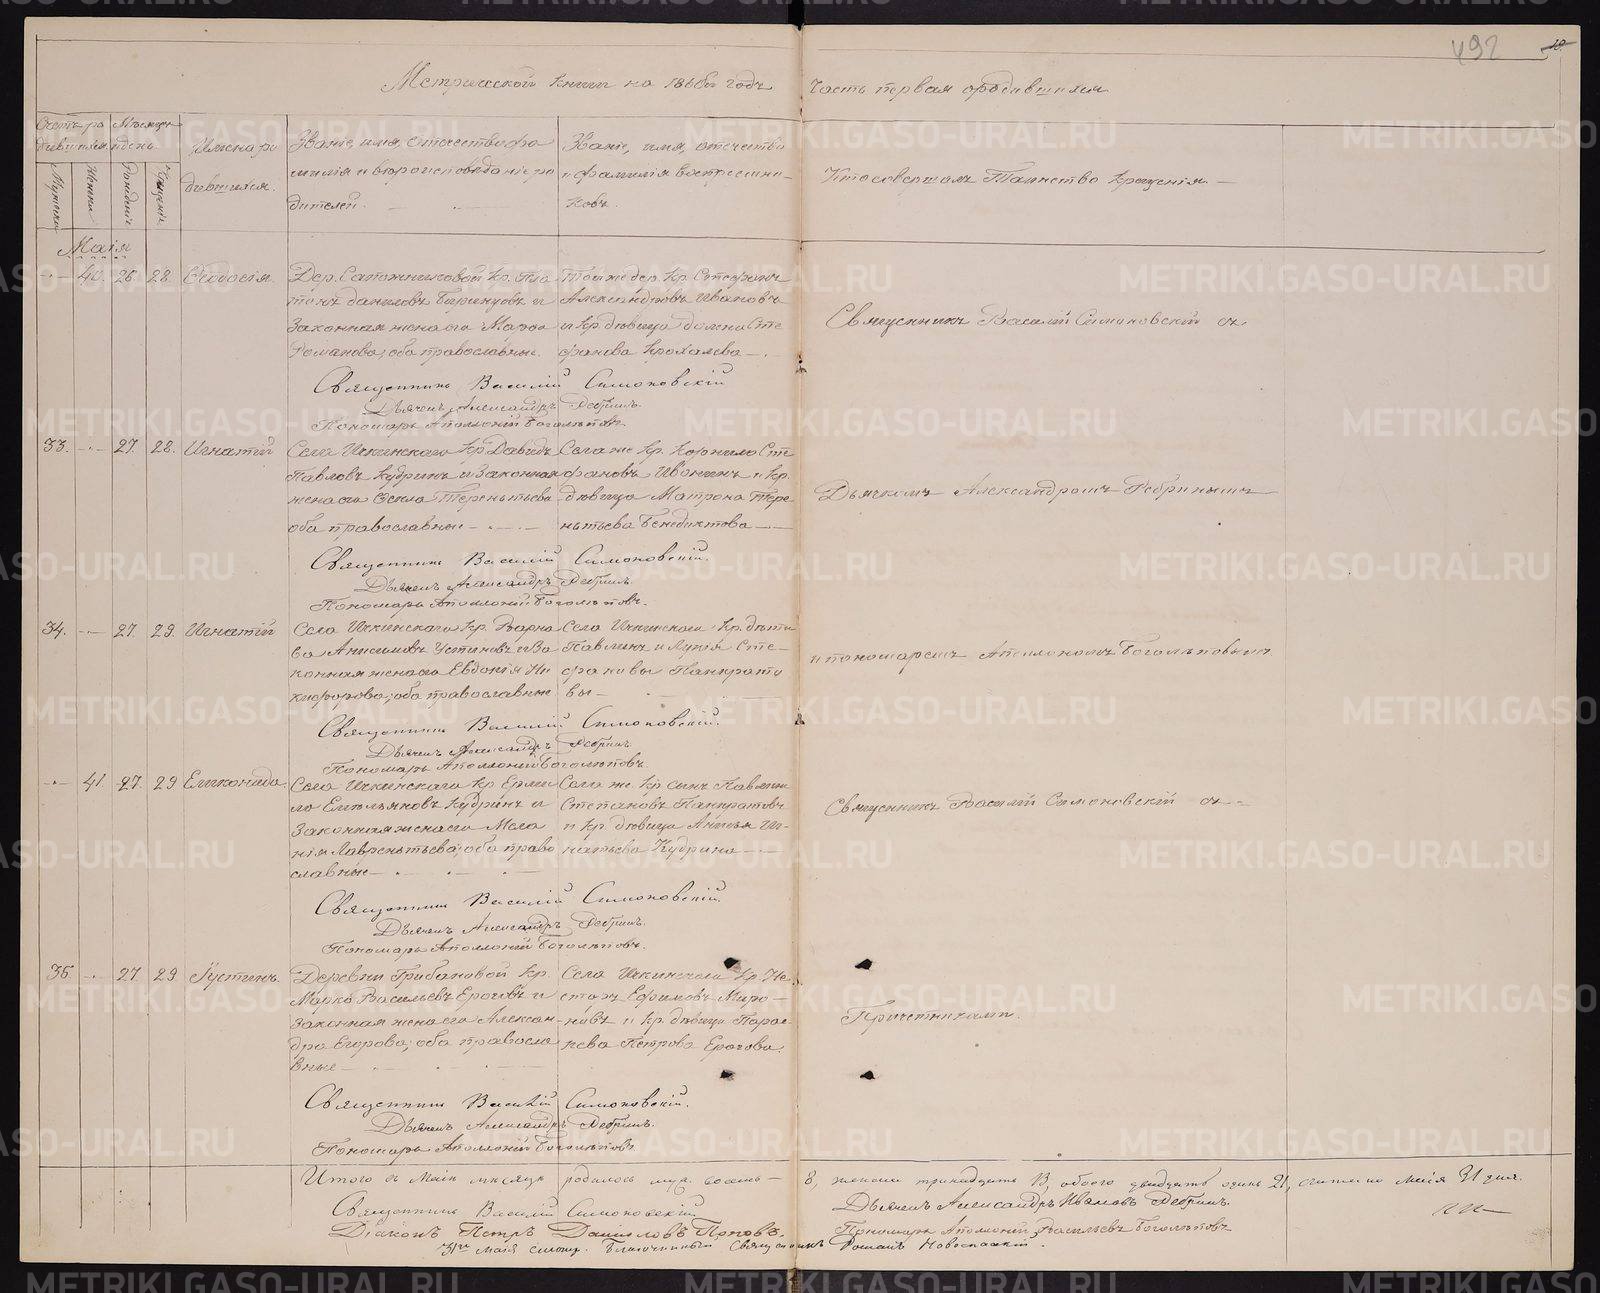 492
Метрической книги на 1866й годъ
Часть первая о родившихся
Счетъ родившихся
Мѣсяцъ и день
Мужеска
Женска
Рожденія
Крещенія
Имена родившихся.
Званіе, имя, отчество, фамилія и вѣроисповѣданіе родителей.
Званіе, имя, отчество и фамилія воспріемниковъ.
Кто совершалъ Таинство Крещенія. —
Маія
40. 26. 28. Ѳеодосія.
Дер. Сапожниковой Кр. Пла-
тонъ Даниловъ и
Законная жена его Марѳа
Романова; оба православные.
Тойже дер. Кр. Стефанъ
Александровъ Ивановъ
и кр. дѣвица Домна Сте
фанова Крохалева —.
Священникъ Василій Симоновскій съ
Священникъ Василій Симоновскій
Дьячекъ Александръ Ребринъ.
Пономарь Аполлоній Боголѣповъ.
33. — 27. 28. Игнатій
Села Ичкинскаго Кр. Давидъ
Павловъ Кудринъ и Законная
жена его Ѳекла Терентьева
оба православные —
Села же Кр. Корнило Сте
фановъ Ивонинъ и Кр.
дѣвица Матрона Тере
нтьева Бенедиктова —
Дьячкомъ Александромъ Ребринымъ
Священникъ Василій Симоновскій.
Дьячекъ Александръ Ребринъ.
Пономарь Аполлоній Боголѣповъ.
34. — 27. 29. Игнатій
Села Ичкинскаго Кр. Варна
ва Анисимовъ Устиновъ и За
конная жена его Евдокія Ни
кифорова; оба православные
Села Ичкинскаго Кр. дѣти
Павлинъ и Лукія Сте-
фановы Панкрато
вы —
и пономаремъ Аполлономъ Боголѣповымъ
Священникъ Василій Симоновскій.
Дьячекъ Александръ Ребринъ
Пономарь Аполлоній Боголѣповъ.
— 41. 27. 29 Еликонида
Села Ичкинскаго Кр. Ерми
ло Емельяновъ Кудринъ и
Законная жена его Мела
нія Лаврентьева; оба право
славные —
Села же Кр. сынъ Павлинъ
Степановъ Панкратовъ
и Кр. дѣвица Анисья Иг-
натьева Кудрина —
Священникъ Василій Симоновскій съ —
Священникъ Василій Симоновскій.
Дьячекъ Александръ Ребринъ.
Пономарь Аполлоній Боголѣповъ.
35. — 27 29. Іустинъ.
Деревни Грибановой Кр.
Марко Васильевъ Ероговъ и
Законная жена его Алексан-
дра Егорова; оба правосла
вные —
Села Ичкинскаго Кр. Не
сторъ Ефимовъ Миро-
новъ и Кр. дѣвица Парас-
кева Петрова Ерогова.
Причетниками.
Священникъ Василій Симоновскій.
Дьячекъ Александръ Ребринъ.
Пономарь Аполлоній Боголѣповъ.
Итого въ Маіѣ мѣсяцѣ родилось муж. восемь — 8, женска тринадцать 13, обоего двадцать одинъ 21, считано Маія 31 дня.
Священникъ Василій Симоновскій
Дьячекъ Александръ Ивановъ Ребринъ.
Діаконъ Петръ Даниловъ Поповъ.
Пономарь Аполлоній Васильевъ Боголѣповъ
31го Маія смотр. Благочинный Священникъ Романъ Новоспасскій.
METRIKI.GASO-URAL.RU